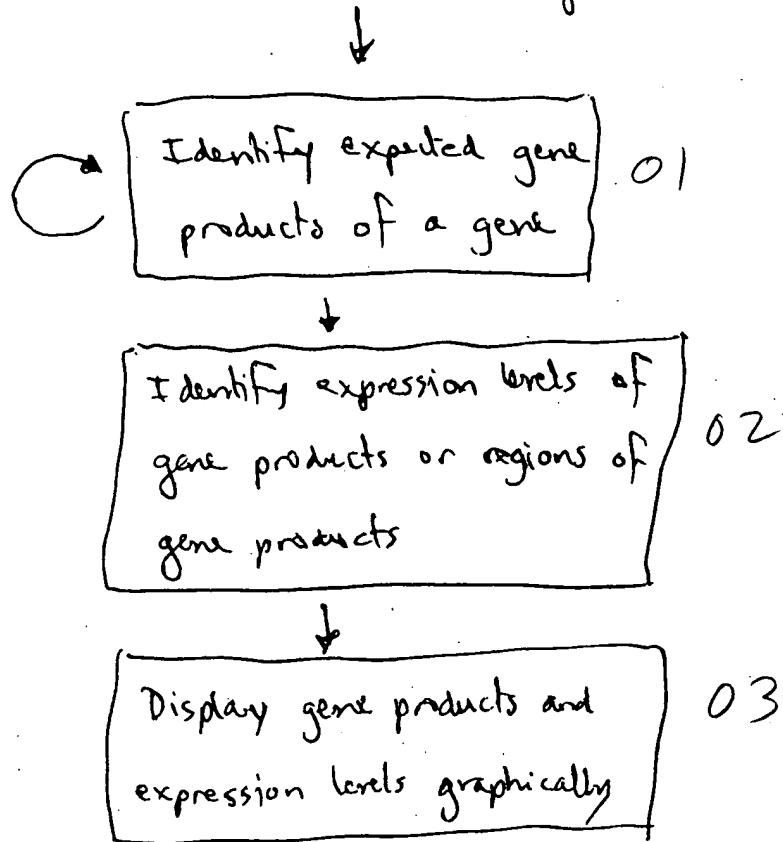 Identify expected gene
products of a gene
01
Identify expression levels of
gene products or regions of
gene products
02
Display gene products and
expression levels graphically
03